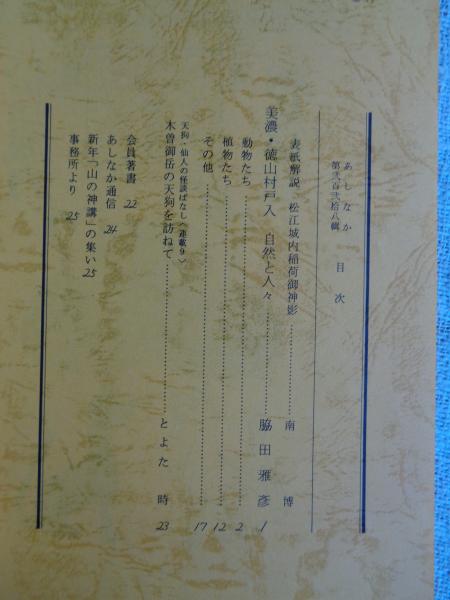 あしなか
第弐百弐拾八輯
目次
表紙解説 松江城内稲荷御神影 南博
美濃・徳山村戸入 自然と人々 脇田雅彦 1
動物たち 2
植物たち 12
その他 17
天狗・仙人の怪談ばなし〈連載9〉
木曽御岳の天狗を訪ねて とよた時 23
会員著書 22
あしなか通信 24
新年「山の神講」の集い 25
事務所より 25